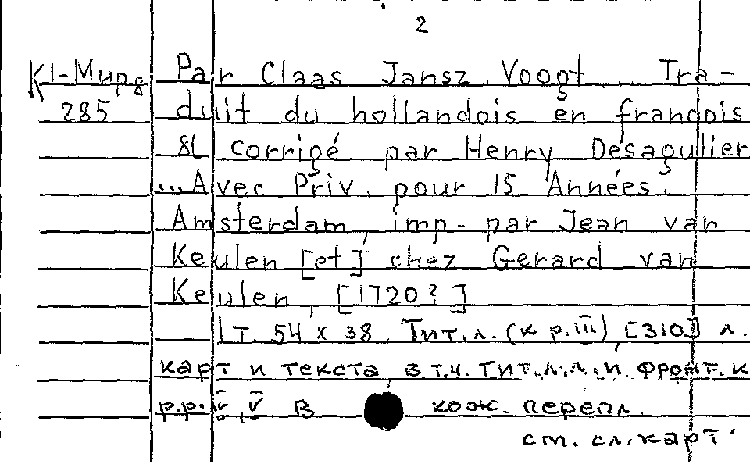 2
К1-Мира Par Claas Jansz. Voogt. Tra-
285 duit du hollandois en franςois
& corrigé par Henry Desagulier
...Avec Priv. pour 15 Années.
Amsterdam, imp. par Jean van
Keulen [et] chez Gerard van
Keulen, [1720?]
1 т. 54 x 38. Тит. л. (к р. III), [310] л.
карт и текста, в т.ч. тит. л.л. и фронт. к
р.р. IV, V в кож. перепл.
см. сл. карт.